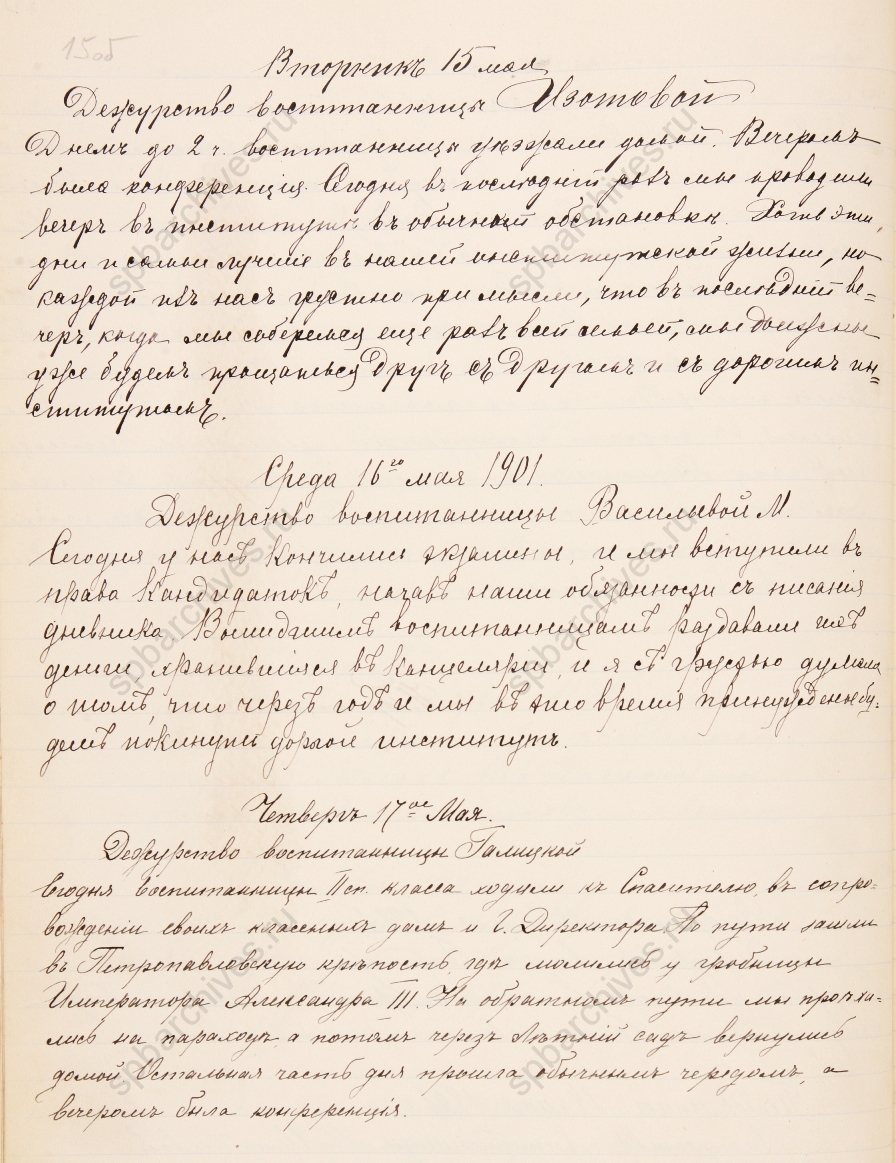 15об
Вторникъ 15 мая
Дежурство воспитанницы Изотовой
Днемъ до 2 ч. воспитанницы уѣзжали домой. Вечеромъ
была конференція. Сегодня въ послѣдній разъ мы проводили
вечеръ въ институтѣ въ обычной обстановкѣ. Хоть эти
дни и самые лучшіе въ нашей институтской жизни, но
каждой изъ насъ грустно при мысли, что въ послѣдній ве=
черъ, когда мы соберемся еще разъ всей семьей, мы должны
уже будемъ прощаться другъ съ другомъ и съ дорогимъ ин=
ститутомъ.
Среда 16го мая 1901.
Дежурство воспитанницы Васильевой М.
Сегодня у насъ кончились экзамены, и мы вступили въ
права кандидатокъ, начавъ наши обязанности съ писанія
дневника. Вышедшимъ воспитанницамъ раздавали ихъ
деньги хранившіяся въ канцеляріи, и я съ грустью думала
о томъ, что черезъ годъ и мы въ это время принуждены бу-
демъ покинуть дорогой институтъ.
Четвергъ 17ое Мая.
Дежурство воспитанницы Галицкой
Сегодня воспитанницы II сп. класса ходили къ Спасителю, въ сопро-
вожденіи своихъ классныхъ дамъ и Г. Директора. По пути зашли
въ Петропавловскую крѣпость, гдѣ молились у гробницы
Императора Александра III. На обратномъ пути мы проѣха=
лись на пароходѣ, а потомъ черезъ Лѣтній садъ вернулись
домой. Остальная часть дня прошла обычнымъ чередомъ, а
вечеромъ была конференція.
spbarchives.ru
spbarchives.ru
spbarchives.ru
spbarchives.ru
spbarchives.ru
spbarchives.ru